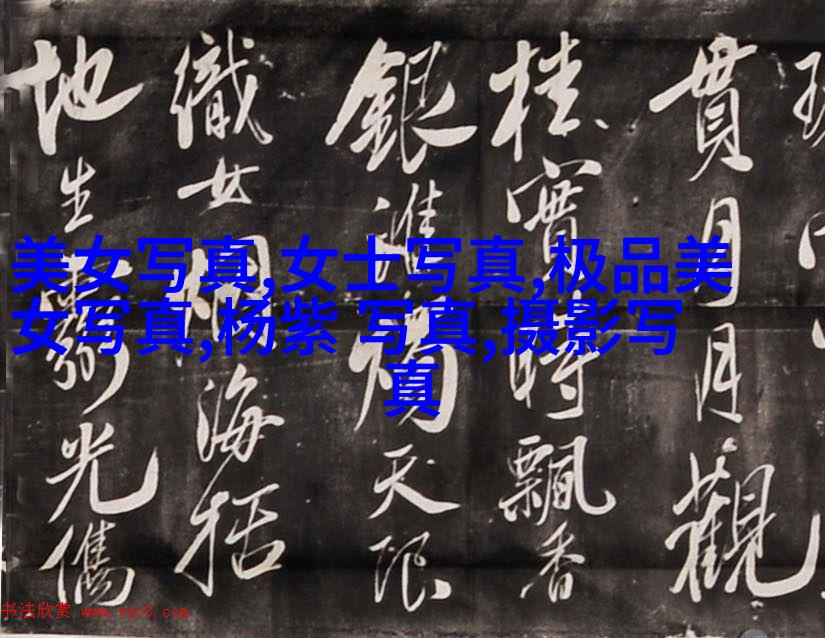 美女写真,女士写真,极品美
女写真,杨紫 写真,摄影写
真
貫月月觀
桂實時飄香
銀淮燭天限
織女海括
地生光儁
书法欣赏 www.yac8.com